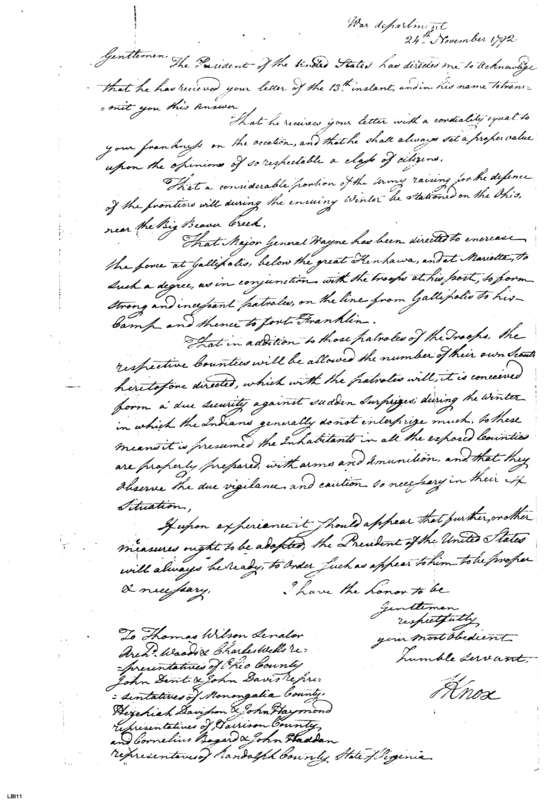 War department
24th November 1792
Gentlemen
The President of the United States has directed me to acknowledge
that he has recieved your letter of the 13th instant, and in his name to trans=
=mit you this answer
That he receives your letter with a cordiality equal to
your frankness on the occation, and that he shall always set a proper value
upon the opinions of so respectable a class of citizens.
That a considerable portion of the Army raising for the defence
of the frontiers will during the ensuing Winter be stationed on the Ohio,
near the Big Beaver Creek.
That Major General Wayne has been directed to encrease
the force at Gallipolis, below the great Kenhawa, and at Marietta, to
such a degree, as in conjunction with the troops at his post, to form
strong and incessant patroles, on the line from Gallipolis to his
Camp and thence to fort Franklin.
That in addition to those patroles of the Troops, the
respective Counties will be allowed the number of their own Scouts
heretofore directed, which with the patroles will, it is conceived
form a due security against sudden Surprizes, during the Winter
in which the Indians generally do not enterprize much. to these
means it is presumed the Inhabitants in all the exposed Counties
are properly prepared with arms and Amunition, and that they
observe the due vigilance and caution so necessary in their
Situation,
If upon experiance it should appear that further, or other
measures ought to be adopted, the President of the United States
will always be ready, to Order such as appear to him to be proper
& necessary.
I have the honor to be
Gentlemen
respectfully
your most Obedient
humble servant.
HKnox
To Thomas Wilson Senator
Archd. Woods & Charles Wells re=
=presentatives of Ohio County
John Dent & John Davis repre=
=sentatives of Monongalia County.
Hezekiah Davisson & John Haymond
representatives of Harrison County
and Cornelius Bogard & John Haddan
representaves of Randolph County, State of Virginia
LBI11